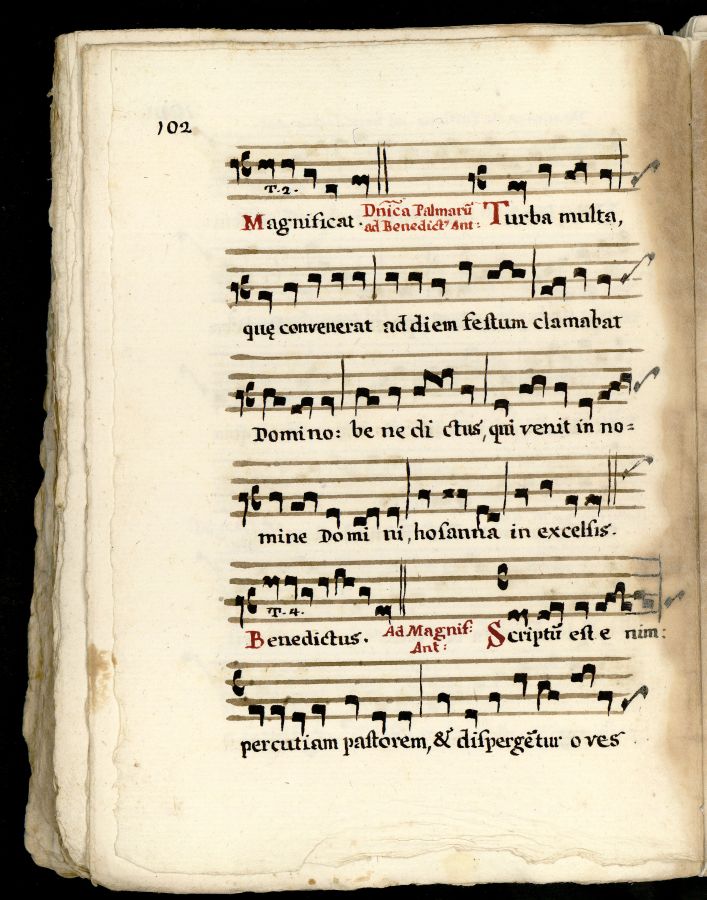 102
T. 2.
Magnificat. Dn̄ica Palmarū ad Benedictꝰ Ant: Turba multa,
quę convenerat ad diem feſtum clamabat
Domino: be ne di ctus, qui venit in no=
mine Domi ni, hoſanna in excelſis.
T. 4.
Benedictus. Ad Magnif: Ant: Scriptū eſt e nim:
percutiam paſtorem, & diſpergētur oves